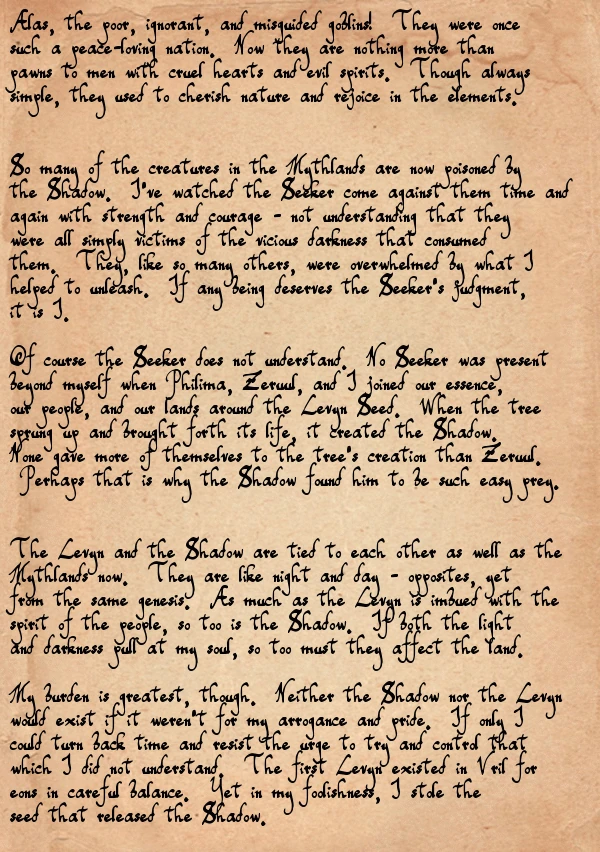 Alas, the poor, ignorant, and misguided goblins!  They were once
such a peace-loving nation.  Now they are nothing more than
pawns to men with cruel hearts and evil spirits.  Though always
simple, they used to cherish nature and rejoice in the elements.
So many of the creatures in the Mythlands are now poisoned by
the Shadow.  I've watched the Seeker come against them time and
again with strength and courage - not understanding that they
were all simply victims of the vicious darkness that consumed
them.  They, like so many others, were overwhelmed by what I
helped to unleash.  If any being deserves the Seeker's judgment,
it is I.
Of course the Seeker does not understand.  No Seeker was present
beyond myself when Philima, Zeruul, and I joined our essence,
our people, and our lands around the Levyn Seed.  When the tree
sprung up and brought forth its life, it created the Shadow.
None gave more of themselves to the tree's creation than Zeruul.
Perhaps that is why the Shadow found him to be such easy prey.
The Levyn and the Shadow are tied to each other as well as the
Mythlands now.  They are like night and day - opposites, yet
from the same genesis.  As much as the Levyn is imbued with the
spirit of the people, so too is the Shadow.  If both the light
and darkness pull at my soul, so too must they affect the land.
My burden is greatest, though.  Neither the Shadow nor the Levyn
would exist if it weren't for my arrogance and pride.  If only I
could turn back time and resist the urge to try and control that
which I did not understand.  The first Levyn existed in Vril for
eons in careful balance.  Yet in my foolishness, I stole the
seed that released the Shadow.